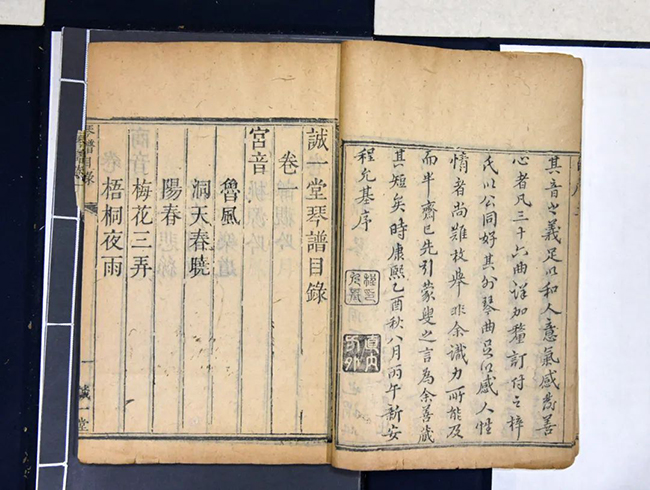 其音之義足以和人意氣感發善
心者凡三十六曲詳加釐訂付之梓
氏以公同好其外琴曲足以感人性
情者尚難枚舉非余識力所能及
而半齋已先引蒙叟之言為余善藏
其短矣時康熙乙酉秋八月丙午新安
程允基序
誠一堂琴譜目錄
卷一
宮音
魯風
洞天春曉
陽春
梅花三弄
梧桐夜雨
琴譜目錄
一
誠一堂